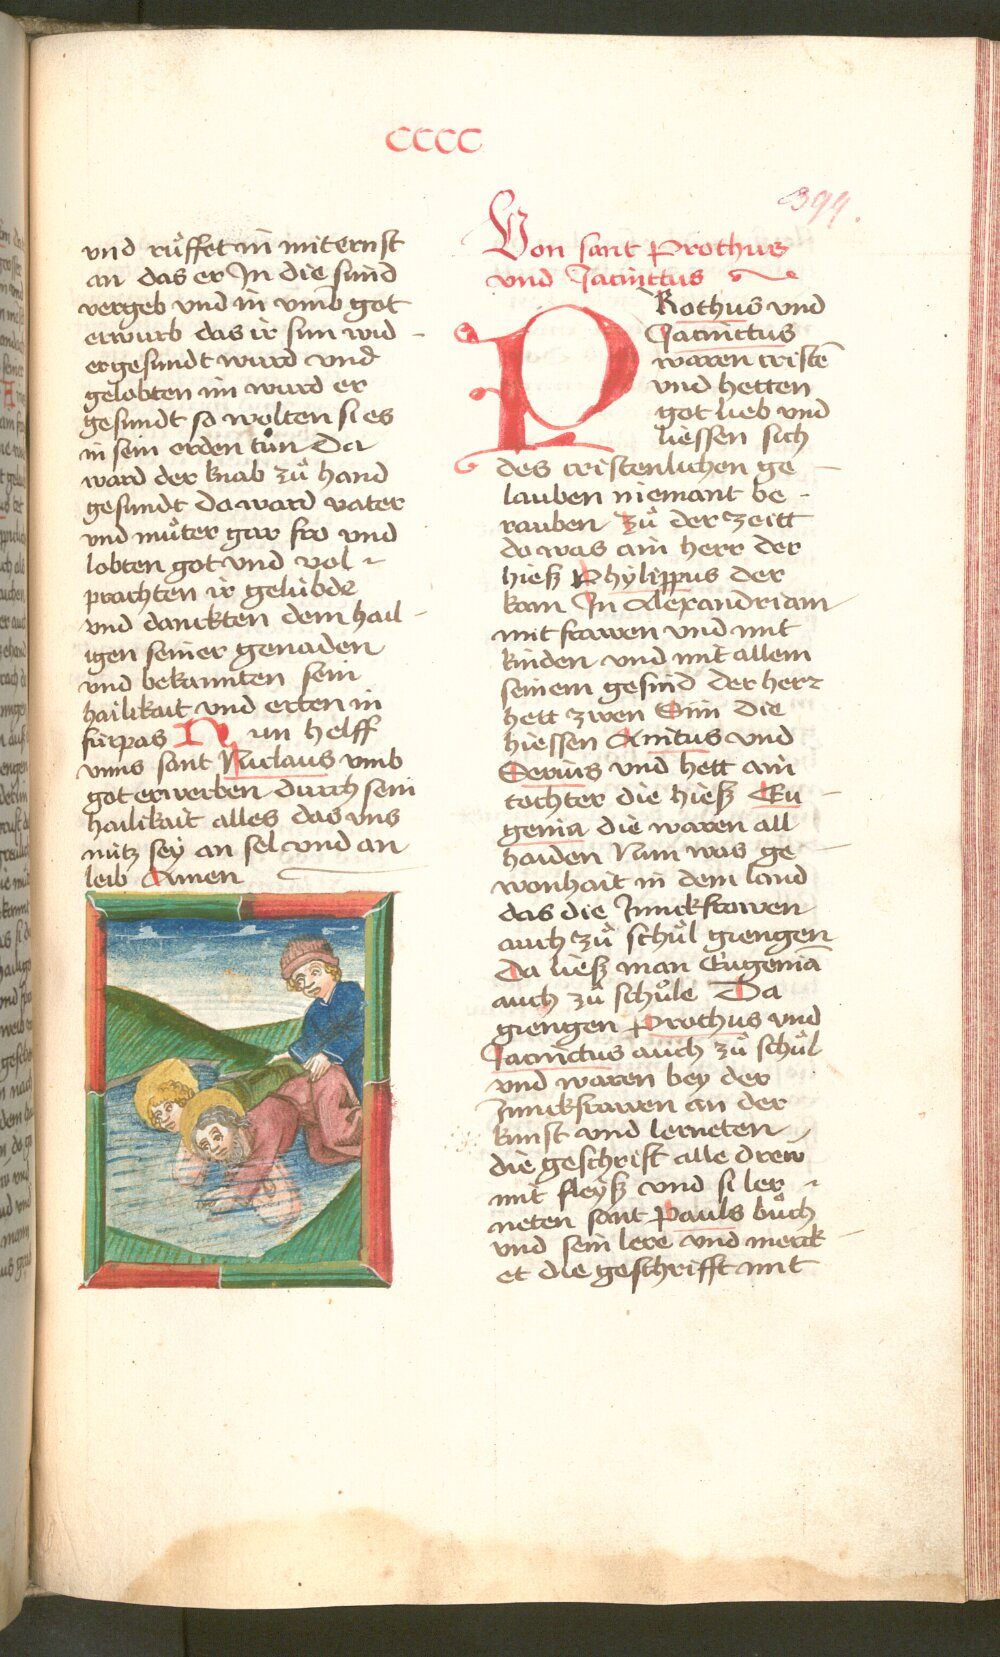 CCCC
399.
vnd ruͤffet in mit ernst
an das er In die sund
vergeb vnd in vmb got
erwurb das ir sun wid-
ergesundt wurd vnd
gelobten im wurd er
gesundt so wolten si es
in sein orden tuͦn Da
ward der knab zuͦ hand
gesundt da ward vater
vnd muͦter gar fro vnd
lobten got vnd vol-
prachten ir gelubde
vnd danckten dem hail-
igen seiner genaden
vnd bekannten sein
hailikait vnd erten in
fürpas Nun helff
vnns sant Niclaus vmb
got erwerben durch sein
hailikait alles das vns
nütz sey an sel vnd an
leib Amen
Von sant Prothus
vnd Jacinctus
PRothus vnd
Jacinctus
waren cristē
vnd hetten
got lieb vnd
liessen sich
des cristenlichen ge-
lauben niemant be-
rauben zuͦ der zeitt
do was ain herr der
hieß Phylippus der
kam In Alexandriam
mit frawen vnd mit
kinden vnd mit allem
seinem gesind der herr
hett zwen Sün die
hiessen Anitus vnd
Serius vnd hett ain
tochter die hieß Eu-
genia die waren all
haiden Nun was ge
wonhait in dem land
das die Junckfrawen
auch zuͦ schuͦl giengen
Da ließ man Eugeniā
auch zuͦ schuͦle Da
giengen Prothus vnd
Jacinctus auch zuͦ schuͦl
vnd waren bey der
Junckfrawen an der
kunst vnd lerneten
die geschrift alle drew
mit fleyß vnd si ler-
neten sant Pauls buͦch
vnd sein lere vnd merck-
et die geschrifft mit